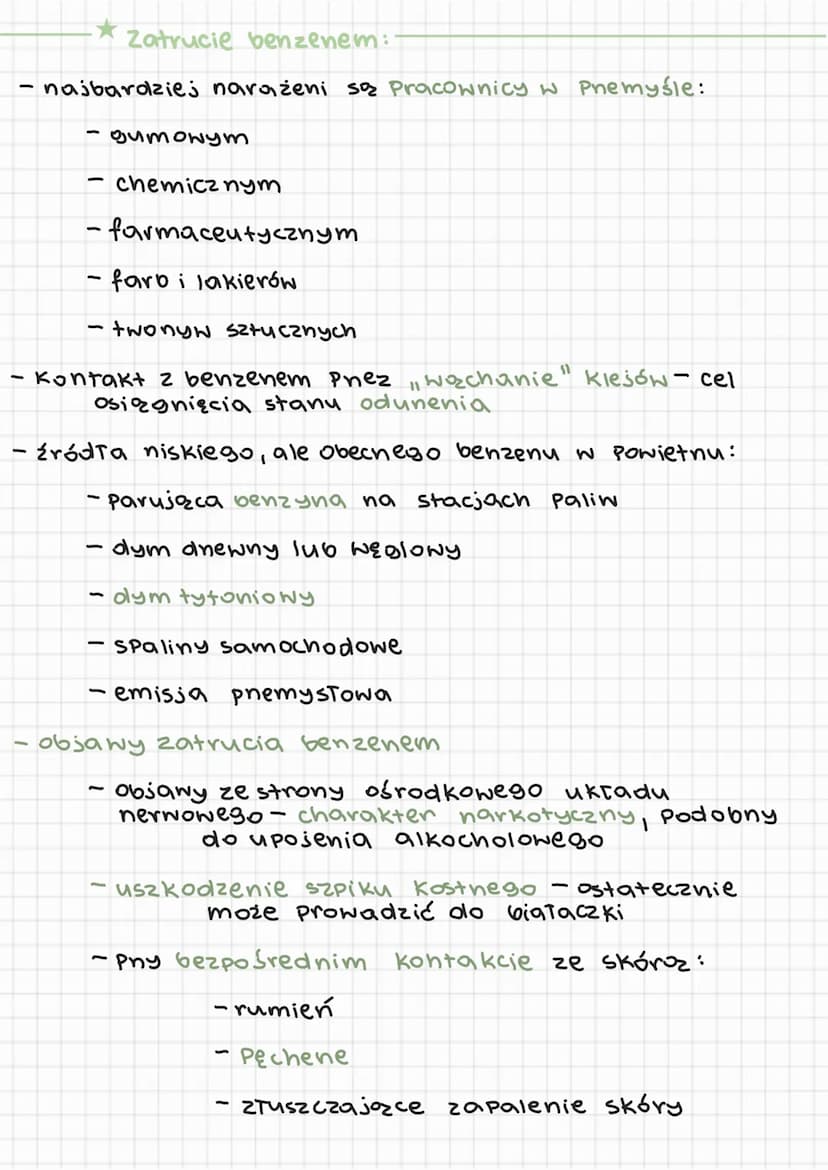 ★ Zatrucie benzenem:
- najbardziej narażeni są Pracownicy w Przemyśle:
- gumowym
- chemicznym
- farmaceutycznym
- farb i lakierów
- tworzyw sztucznych
- Kontakt z benzenem Przez „wąchanie" klejów - cel
osiągnięcia stanu odurzenia
- źródła niskiego, ale obecnego benzenu w Powietrzu:
- parująca benzyna na stacjach Paliw
- dym drzewny lub węglowy
- dym tytoniowy
- spaliny samochodowe
- emisja przemysłowa
- objawy zatrucia benzenem
- objawy ze strony ośrodkowego układu
nerwowego - charakter narkotyczny, podobny
do upojenia alkocholowego
- uszkodzenie szpiku kostnego - ostatecznie
może prowadzić do białaczki
- Przy bezpośrednim kontakcie ze skórą:
- rumień
- Pęcherze
- złuszczające zapalenie skóry